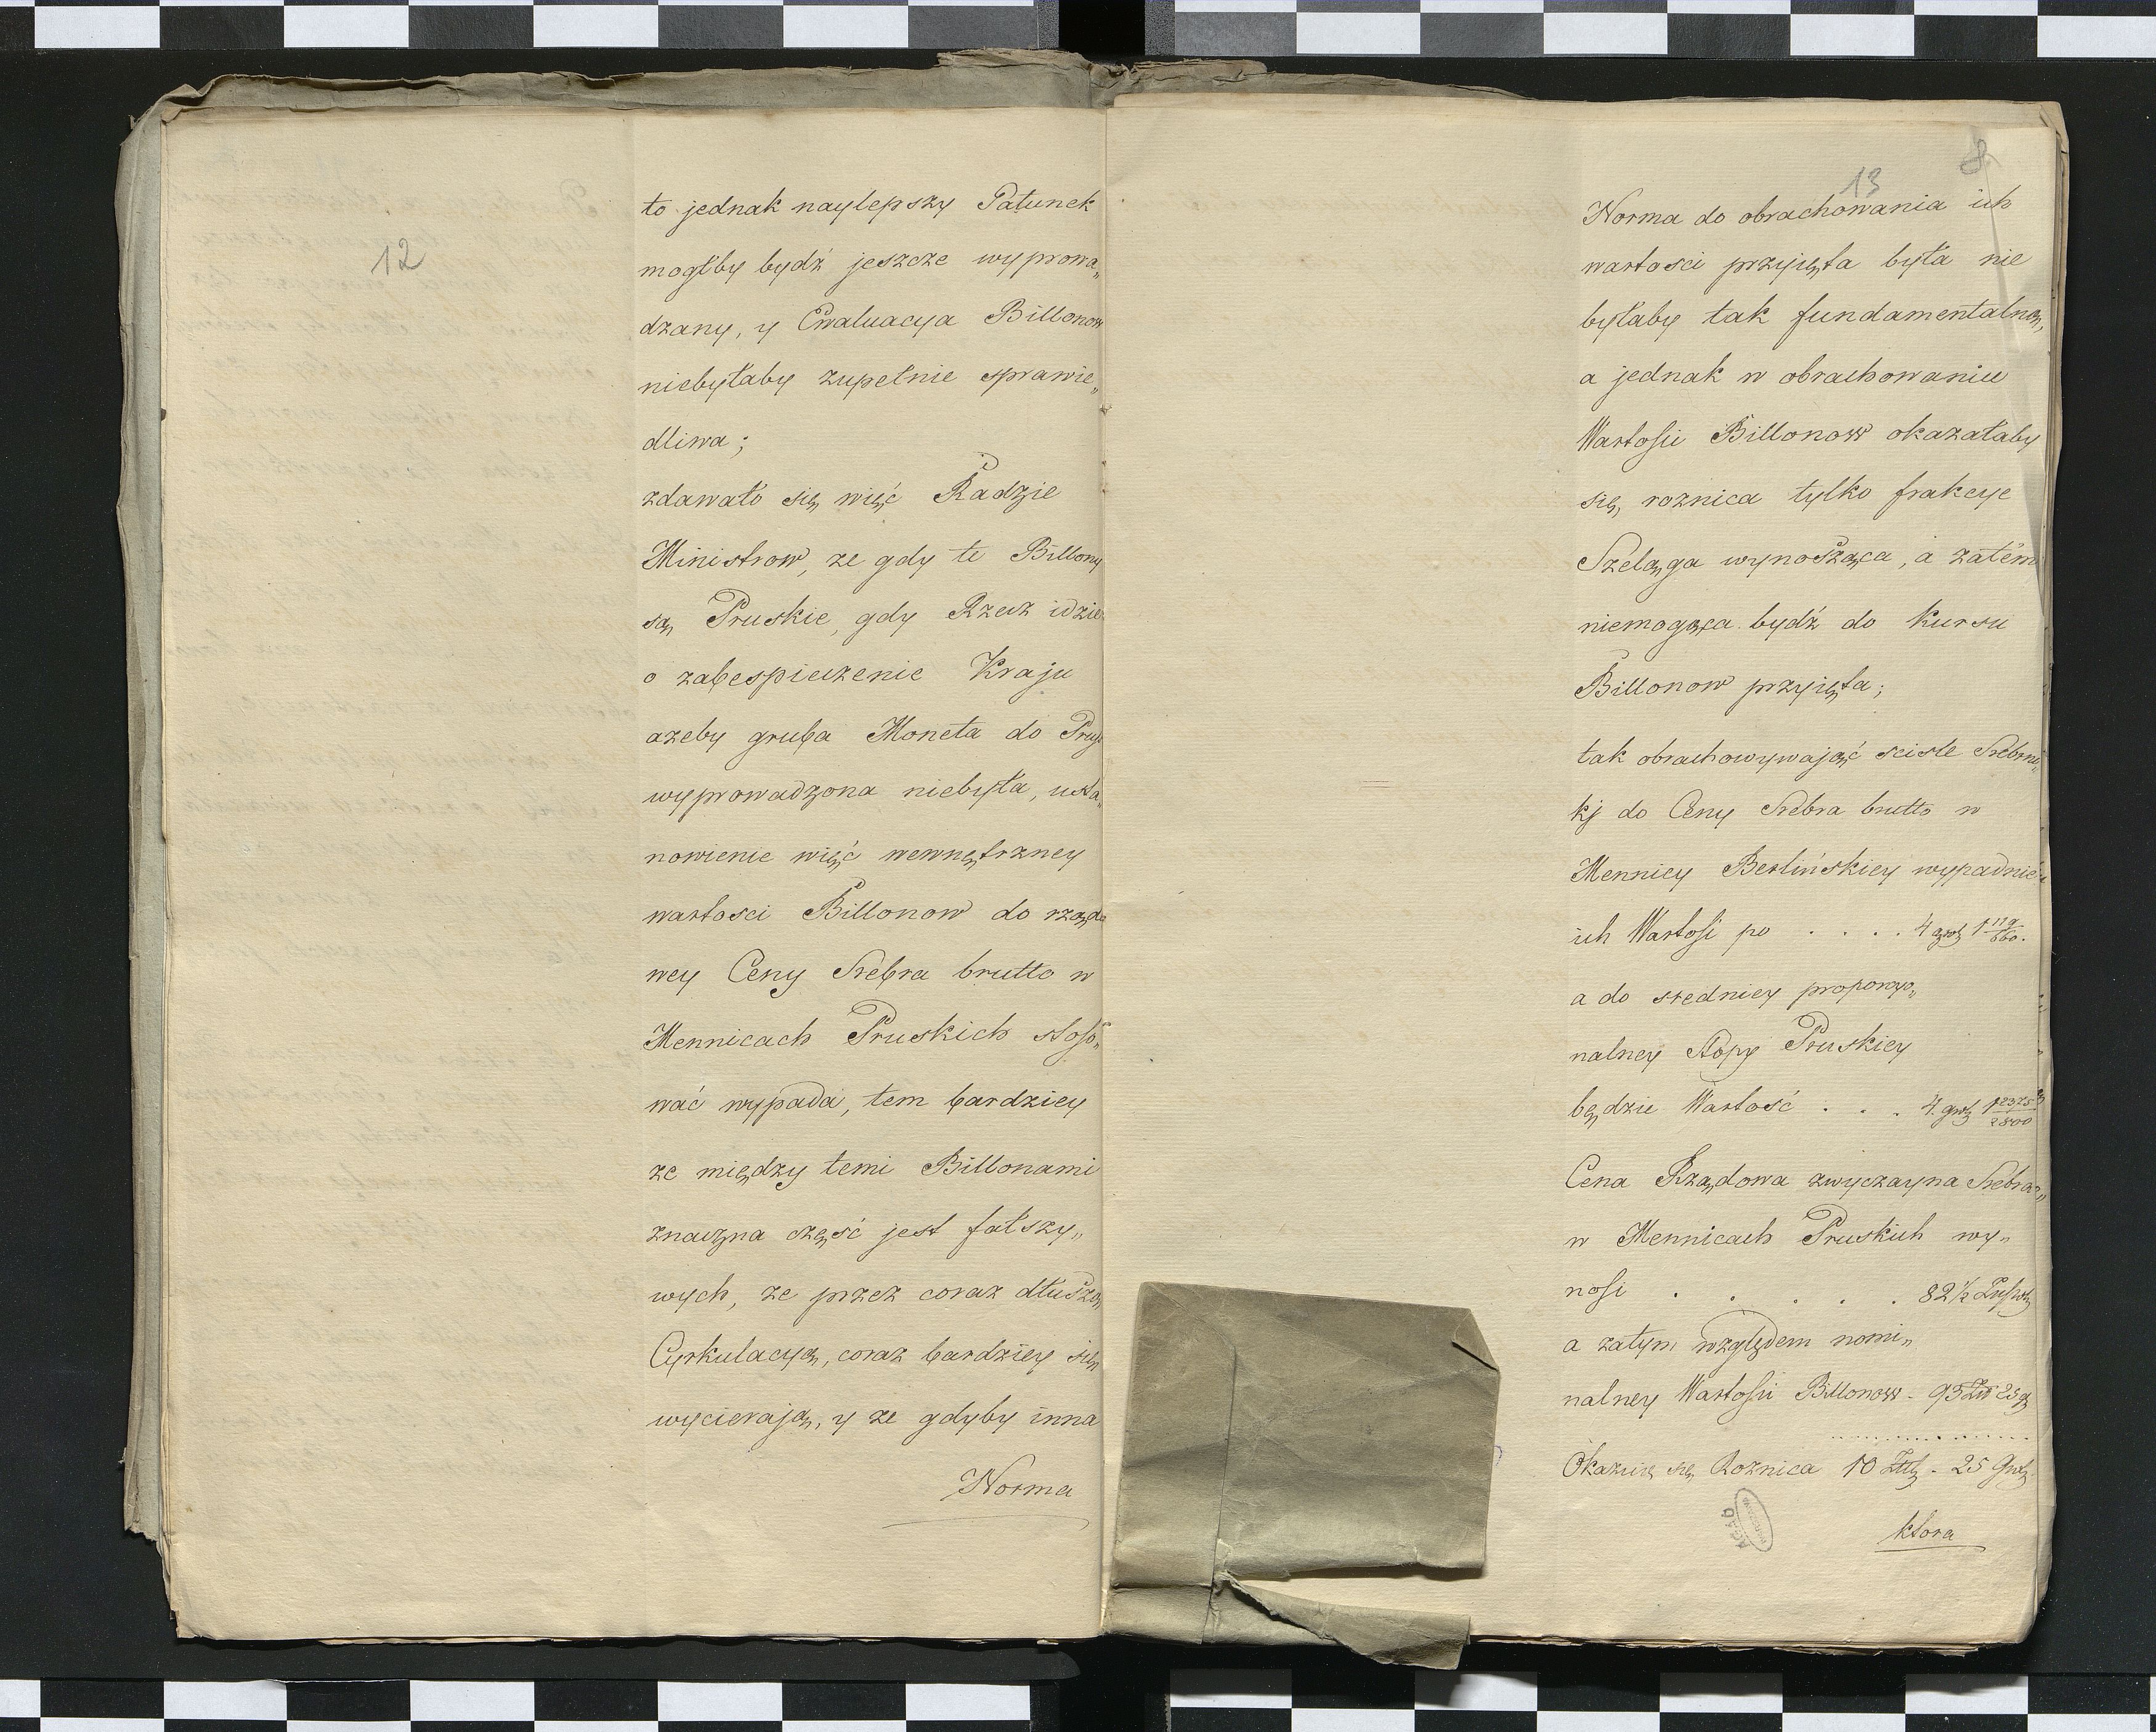 12
to jednak naylepszy Patunek
mogłby bydź jeszcze wyprowa„
dzany, y Ewaluacya Billonow
niebyłaby zupełnie sprawie„
dliwa;
zdawało się więć Radzie
Ministrow, ze gdy te Billony
są Pruskie, gdy Rzecz idzie
o zabespieczenie Kraju
azeby gruba Moneta do Pruss
wyprowadzona niebyła, usta„
nowienie więć wewnętrzney
wartosci Billonow do rządo
wey Ceny Srebra brutto w
Mennicach Pruskich stoso„
wać wypada, tem bardziey
ze między temi Billonami
znaczna część jest fałszy„
wych, ze przez coraz dłuszą
Cyrkulacyą, coraz bardziey się
wycierają, y ze gdyby inna
Norma
13
8
Norma do obrachowania ich
wartosci przyięta była nie
byłaby tak fundamentalną,
a jednak w obrachowaniu
Wartosci Billonow okazałaby
się, roznica tylko frakcye
Szeląga wynosząca, a zatém
niemogąca bydź do kursu
Billonow przyięta;
tak obrachowywająć sciśle Srebrni„
kj do Ceny Srebra brutto w
Mennicy Berlińskiey wypadnie
ich Wartosi po . . . . 4 gro 1 119/660.
a do sredniey proporcyo„
nalney Stopy Pruskiey
będzie Wartość . . . 4. gro 1 2375/2800
Cena Rządowa zwyczayna Srebra
w Mennicach Pruskich wy„
nosi . . . . . 82 1/2
a zatym względem nomi„
nalney Wartosci Billonow - 93 Zło 25 g
Okazuie się Roznica 10 Złł - 25 Gro
ktora